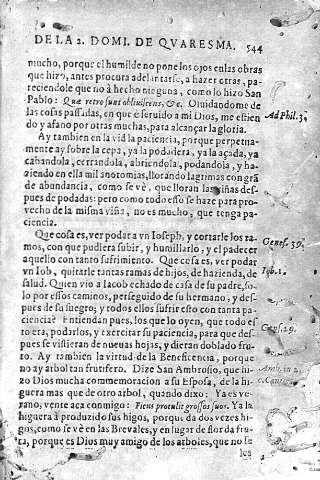 DE LA 2. DOMI. DE QVARESMA. 544
mucho, porque el humilde no pone los ojos en las obras
que hizo, antes procura adelantarse, a hazer otras, pa-
reciendole que no à hecho ninguna, como lo hizo San
Pablo: Quæ retro sunt obliuiscens, &c. Oluidandome de
las cosas passadas, en que è seruido a mi Dios, me estien
do y afano por otras muchas, para alcançar la gloria.
Ad Phil. 3.
Ay tambien en la vid la paciencia, porque perpetua-
mente ay sobre la cepa, ya la podadera, ya la açada, ya
cabandola, cerrandola, abriendola, podandola, y ha-
ziendo en ella mil anotomias, llorando lagrimas con grã
de abundancia, como se vè, que lloran las viñas des-
pues de podadas: pero como todo esso se haze para pro-
vecho de la misma viña, no es mucho, que tenga pa-
ciencia.
Que cosa es, ver podar a vn Ioseph, y cortarle los ra-
mos, con que pudiera subir, y humillarlo, y el padecer
aquello con tanto sufrimiento. Que cosa es, ver podar
vn Iob, quitarle tantas ramas de hijos, de hazienda, de
salud. Quien vio a Iacob echado de casa de su padre, so-
lo por essos caminos, perseguido de su hermano, y des-
pues de su suegro, y todos ellos sufrir esto con tanta pa-
ciencia? Entiendan pues, los que lo oyen, que todo es-
to era, podarlos, y exercitar su paciencia, para que des-
pues se vistieran de nueuas hojas, y dieran doblado fru-
to. Ay tambien la virtud de la Beneficencia, porque
no ay arbol tan frutifero. Dize San Ambrosio, que hi-
zo Dios mucha commemoracion a su Esposa, de la hi-
guera mas que de otro arbol, quando dixo: Ya es ve-
rano, vente aca conmigo: Ficus protulit grossos suos. Ya la
higuera à produzido sus higos, porque da dos vezes hi-
gos, como se vè en las Brevales, y en lugar de flor da fru-
ta, porque es Dios muy amigo de los arboles, que no se
les
Genes. 39.
Iob. 1.
Genes. 29.